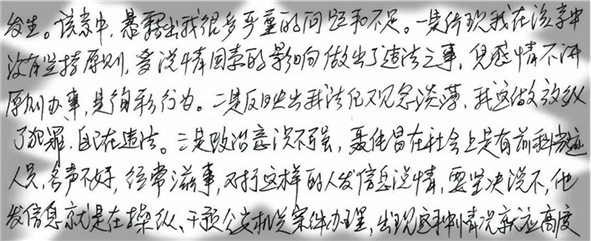 发生。该案中，暴露出我很多严重的问题和不足。一是体现我在该案中
没有坚持原则，受说情因素的影响向做出了违法之事，凭感情不讲
原则办事，是徇私行为。二是反映出我法纪观念淡薄，我这做放纵
了犯罪，自己在违法。三是政治意识不强，聂佳昌在社会上是有前科劣迹
人员，名声不好，经常滋事，对于这样的人发信息说情，要坚决说不，他
发信息就是在操纵、干预公安机关案件办理，出现这种情况就应高度